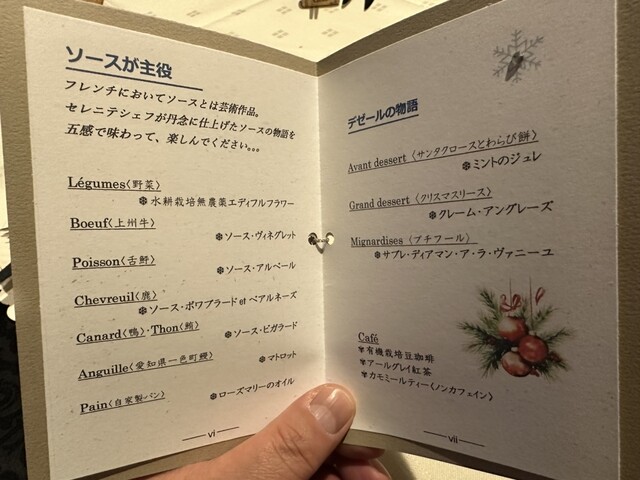 ソースが主役
フレンチにおいてソースとは芸術作品。
セレニテシェフが丹念に仕上げたソースの物語を
五感で味わって、楽しんでください。。。
Légumes〈野菜〉
❄水耕栽培無農薬エディフルフラワー
Boeuf〈上州牛〉
❄ソース・ヴィネグレット
Poisson〈舌鮃〉
❄ソース・アルベール
Chevreuil〈鹿〉
❄ソース・ポワブラード et ベアルネーズ
Canard〈鴨〉・Thon〈鮪〉
❄ソース・ビガラード
Anguille〈愛知県一色町鰻〉
❄マトロット
Pain〈自家製パン〉
❄ローズマリーのオイル
vi
デゼールの物語
Avant dessert〈サンタクロースとわらび餅〉
❄ミントのジュレ
Grand dessert〈クリスマスリース〉
❄クレーム・アングレーズ
Mignardises〈プチフール〉
❄サブレ・ディアマン・ア・ラ・ヴァニーユ
Café
❄有機栽培豆珈琲
❄アールグレイ紅茶
❄カモミールティー〈ノンカフェイン〉
vii